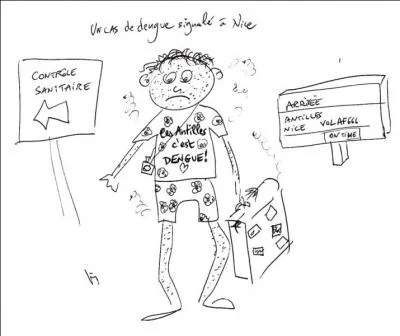 Un cas de dengue signalé à Nice
CONTRÔLE
SANITAIRE
ARRIVÉE
ANTILLES
NICE VOL AF666
ON TIME
Les Antilles
c'est
DENGUE!